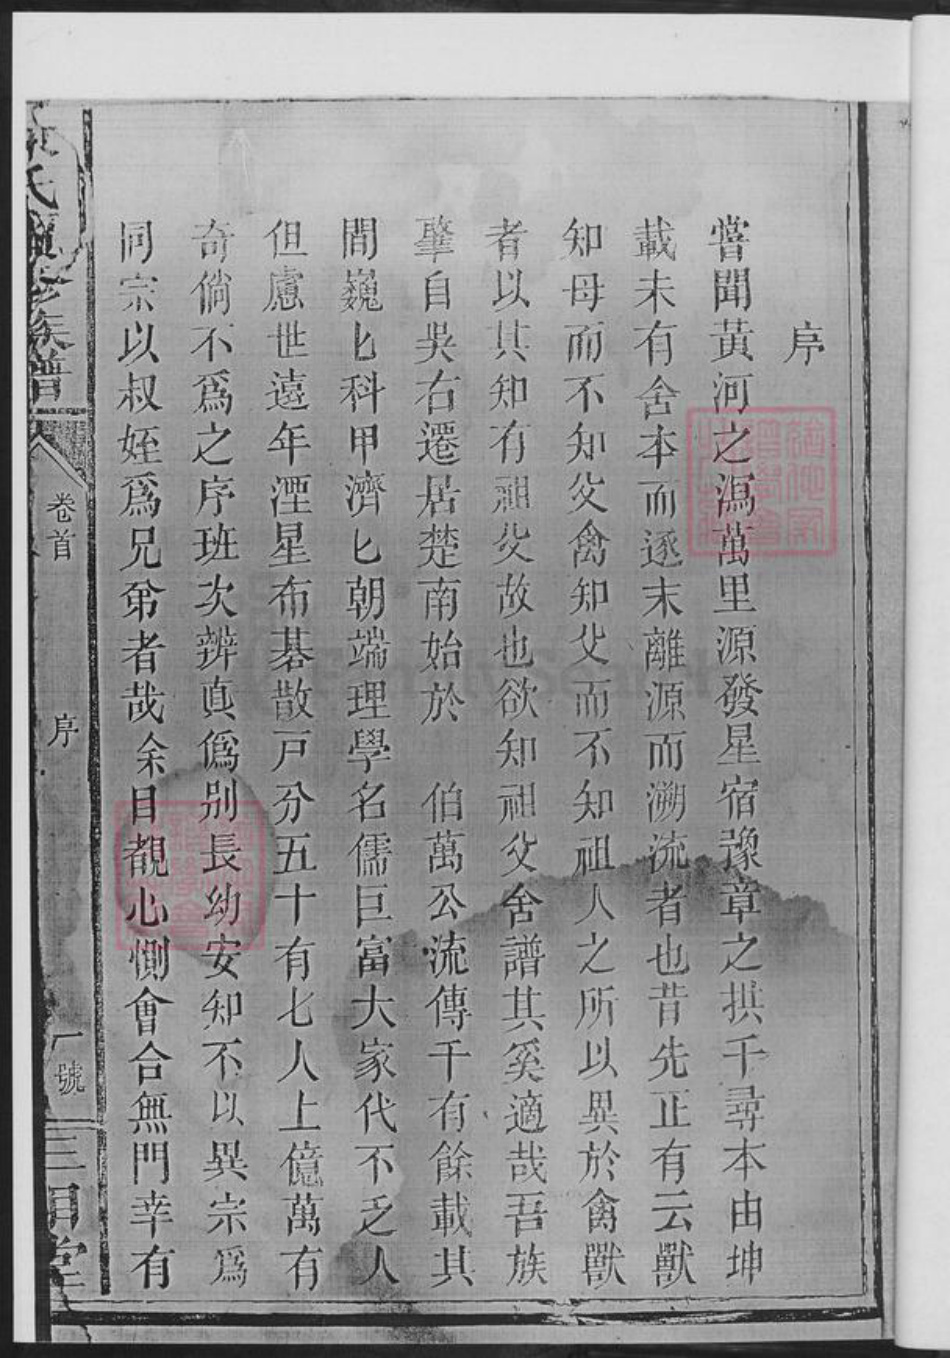 序
嘗聞黃河之瀉萬里源發星宿豫章之拱千尋本由坤
載未有舍本而逐末離源而溯流者也昔先正有云獸
知母而不知父禽知父而不知祖人之所以異於禽獸
者以其知有祖父故也欲知祖父舍譜其奚適哉吾族
肇自吳右遷居楚南始於 伯萬公流傳千有餘載其
間巍匕科甲濟匕朝端理學名儒巨富大家代不乏人
但慮世遠年湮星布碁散戸分五十有七人上億萬有
奇倘不爲之序班次辨真僞別長幼安知不以異宗爲
同宗以叔姪爲兄弟者哉余目覩心惻會合無門幸有
氏 修族譜
卷首
序
號
三 堂
FamilySearch